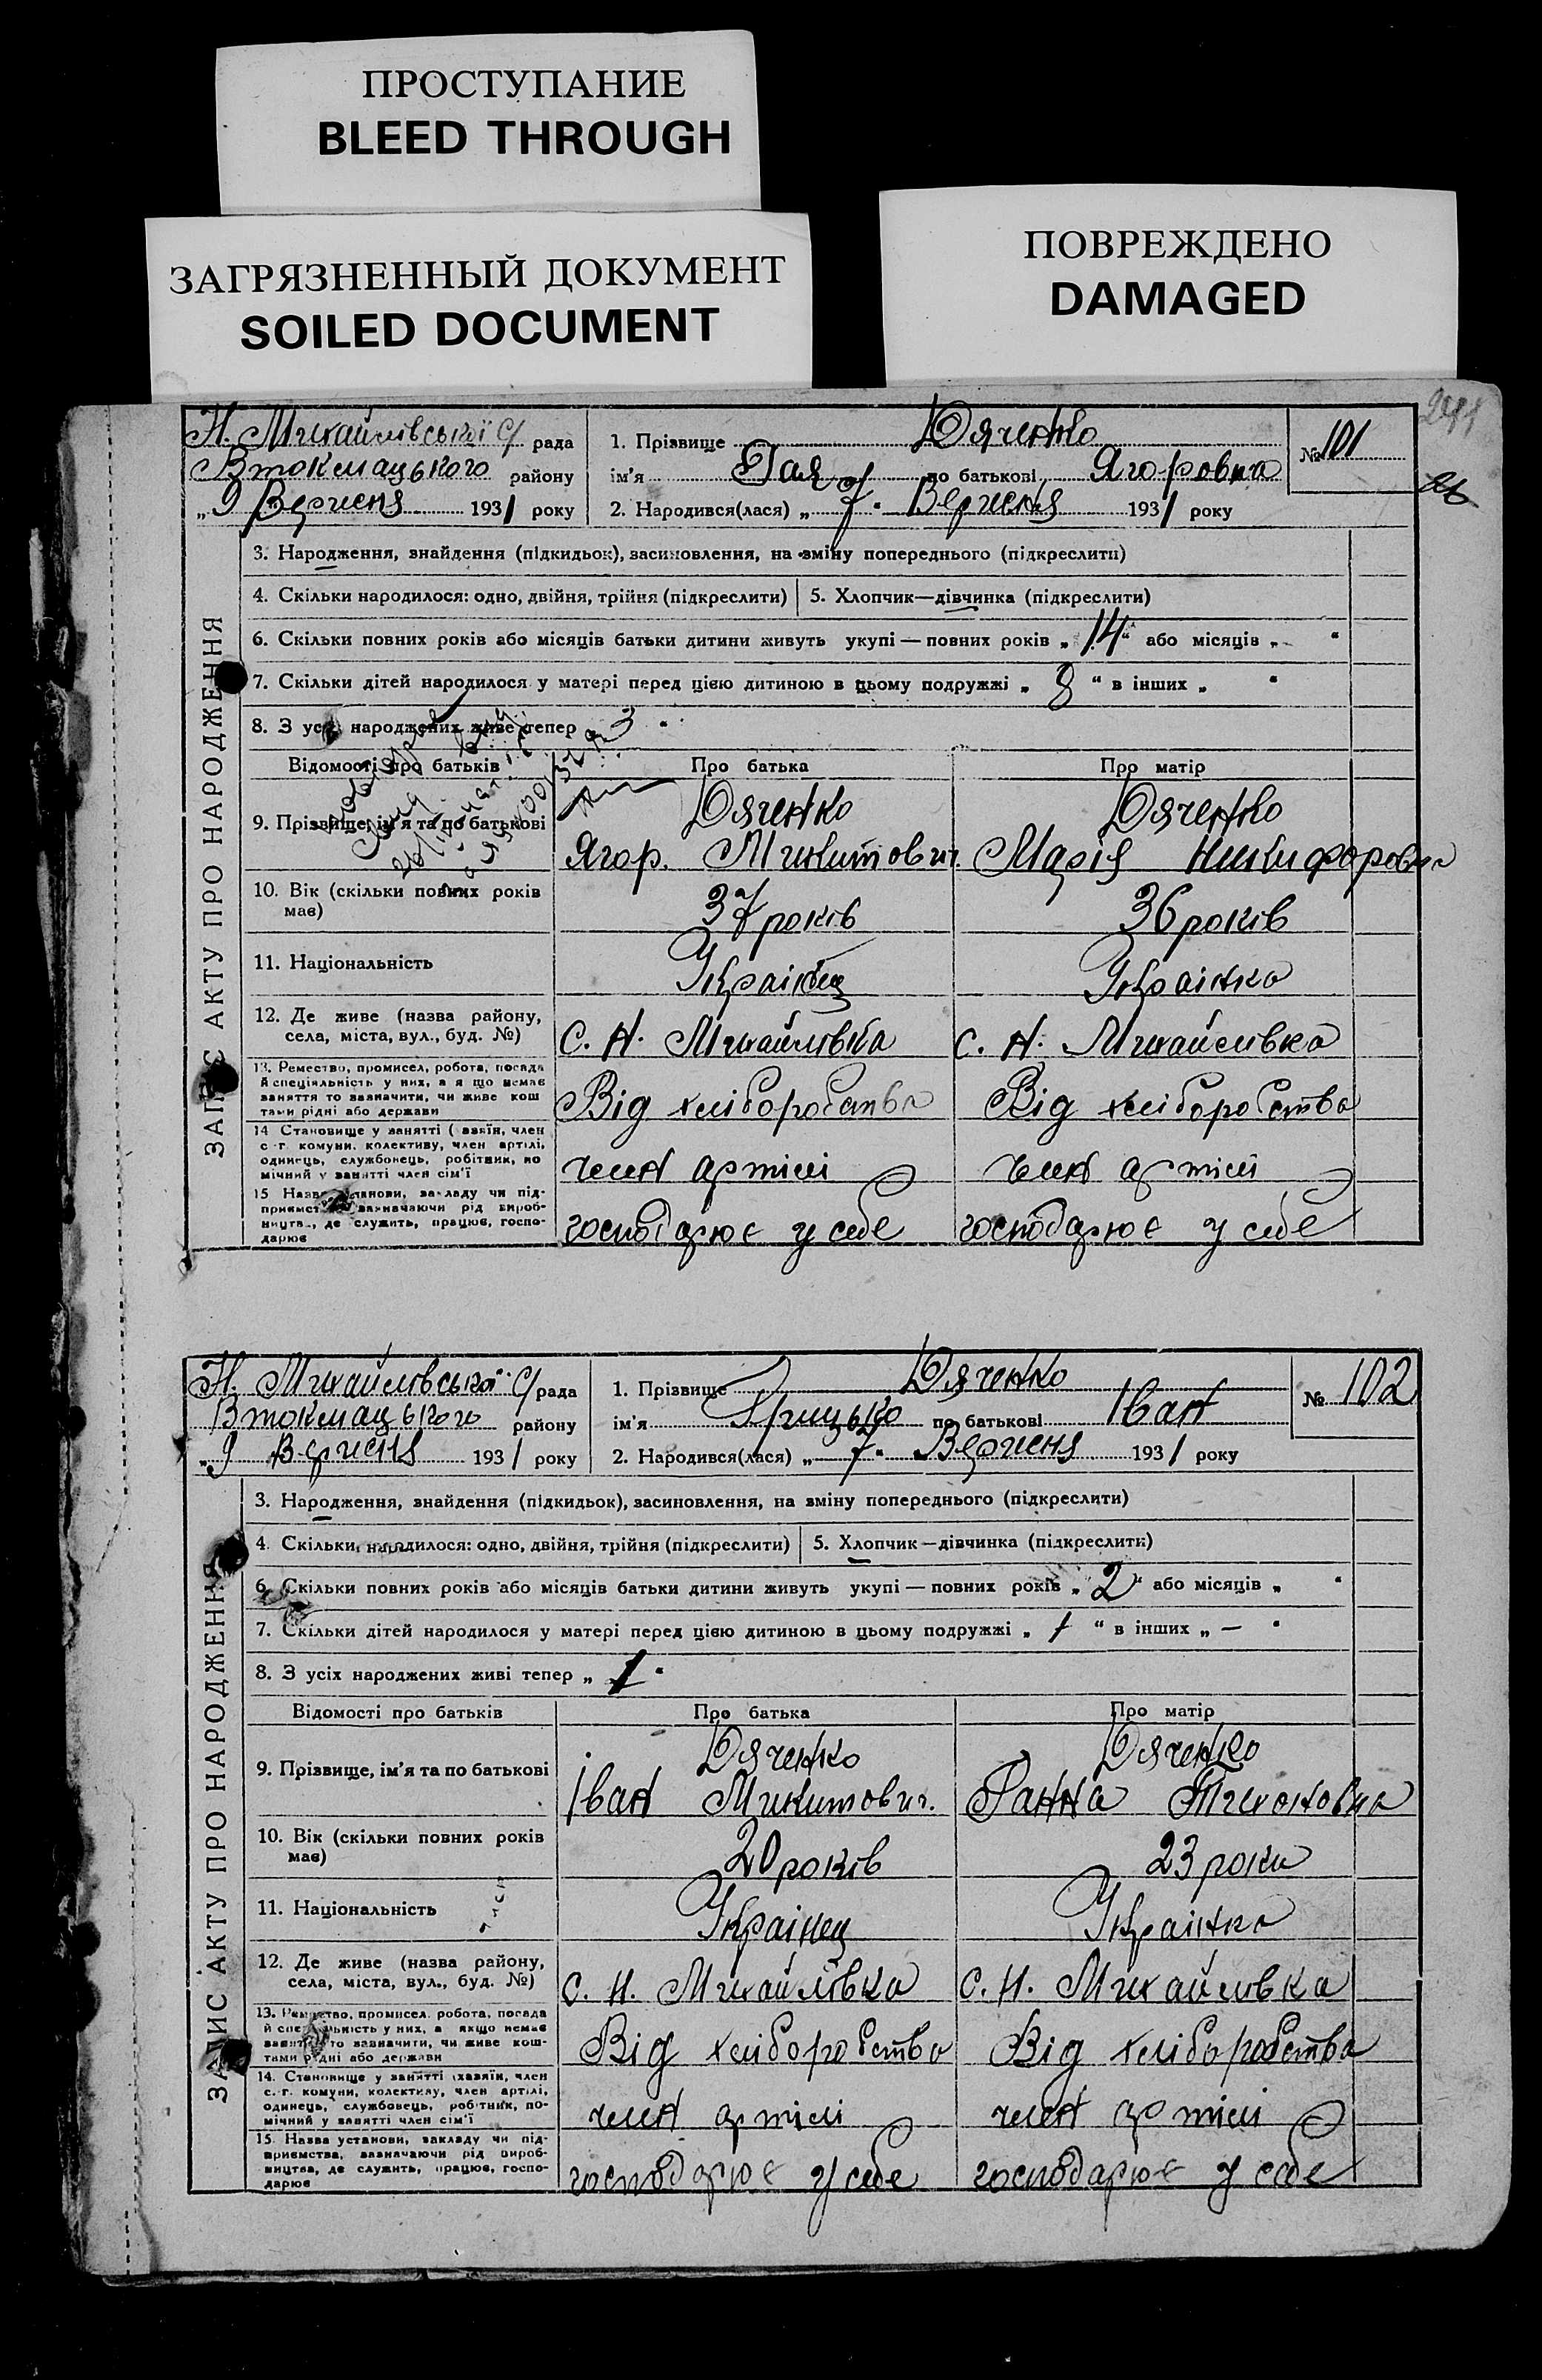 ПРОСТУПАНИЕ
BLEED THROUGH
ЗАГРЯЗНЕННЫЙ ДОКУМЕНТ
SOILED DOCUMENT
ПОВРЕЖДЕНО
DAMAGED
ЗАПИС АКТУ ПРО НАРОДЖЕННЯ
Н. Михайлівської С/ рада
Втокмацького району
„ 9 Вересня 1931 року
1. Прізвище Дяченко
№ 101
ім'я Гая по батькові Ягоровна
2. Народився(лася) „ 7 " Вересня 1931 року
3. Народження, знайдення (підкидьок), засиновлення, на зміну попереднього (підкреслити)
4. Скільки народилося: одно, двійня, трійня (підкреслити) 5. Хлопчик—дівчинка (підкреслити)
6. Скільки повних років або місяців батьки дитини живуть укупі — повних років „ 14 " або місяців „ - "
7. Скільки дітей народилося у матері перед цією дитиною в цьому подружжі „ 8 " в інших „ "
8. З усіх народжених живе тепер „ 3 "
Відомості про батьків Про батька Про матір
9. Прізвище, ім'я та по батькові
Дяченко Дяченко
Ягор. Микитович. Марія Никифоровна
10. Вік (скільки повних років має) 37 років 36 років
11. Національність Українец Українка
12. Де живе (назва району, села, міста, вул., буд. №) с. Н. Михайлівка с. Н. Михайлівка
13. Ремество, промисел, робота, посада
й спеціяльність у них, а я що немає
заняття то зазначити, чи живе кош
тами рідні або держави
Від хліборобства Від хліборобства
14 Становище у занятті ( азяїн, член
с -г. комуни, колективу, член артілі,
одинець, службовець, робітник, по
мічний у занятті член сім'ї
член артілі член артілі
15 Назва установи, закладу чи під-
приємства зазначаючи рід вироб-
ництва, де служить, працює, госпо-
дарює
господарює у себе господарює у себе
ЗАПИС АКТУ ПРО НАРОДЖЕННЯ
Н. Михайлівської С/ рада
Втокмацького району
„ 9 Вересня 1931 року
1. Прізвище Дяченко
№ 102
ім'я Грицько по батькові Іван
2. Народився(лася) „ 7 " Вересня 1931 року
3. Народження, знайдення (підкидьок), засиновлення, на зміну попереднього (підкреслити)
4. Скільки народилося: одно, двійня, трійня (підкреслити) 5. Хлопчик—дівчинка (підкреслити)
6. Скільки повних років або місяців батьки дитини живуть укупі — повних років „ 2 " або місяців „ "
7. Скільки дітей народилося у матері перед цією дитиною в цьому подружжі „ 1 " в інших „ — "
8. З усіх народжених живі тепер „ 1 "
Відомості про батьків Про батька Про матір
9. Прізвище, ім'я та по батькові
Дяченко Дяченко
Іван Микитович. Ганна Тихоновна
10. Вік (скільки повних років має) 20 років 23 роки
11. Національність Українец Українка
12. Де живе (назва району, села, міста, вул., буд. №) с. Н. Михайлівка с. Н. Михайлівка
13. Ремество, промисел, робота, посада
й спеціяльність у них, а якщо немає
заняття то зазначити, чи живе кош-
тами рідні або держави
Від хліборобства Від хліборобства
14. Становище у занятті (хазяїн, член
с.-г. комуни, колективу, член артілі,
одинець, службовець, робітник, по-
мічний у занятті член сім'ї
член артілі член артілі
15. Назва установи, закладу чи під-
приємства, зазначаючи рід вироб-
ництва, де служить, працює, госпо-
дарює
господарює у себе господарює у себе